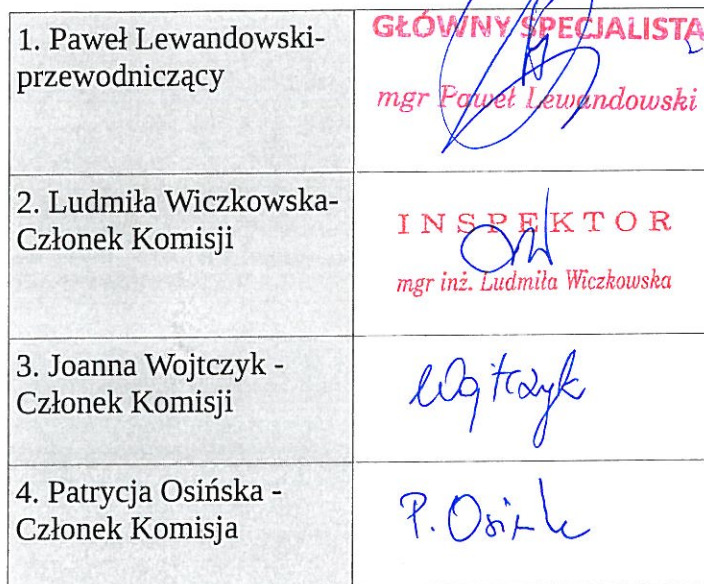 1. Paweł Lewandowski-
przewodniczący
GŁÓWNY SPECJALISTA
mgr Paweł Lewandowski
2. Ludmiła Wiczkowska-
Członek Komisji
INSPEKTOR
mgr inż. Ludmiła Wiczkowska
3. Joanna Wojtczyk -
Członek Komisji
Wojtczyk
4. Patrycja Osińska -
Członek Komisja
P. Osińska